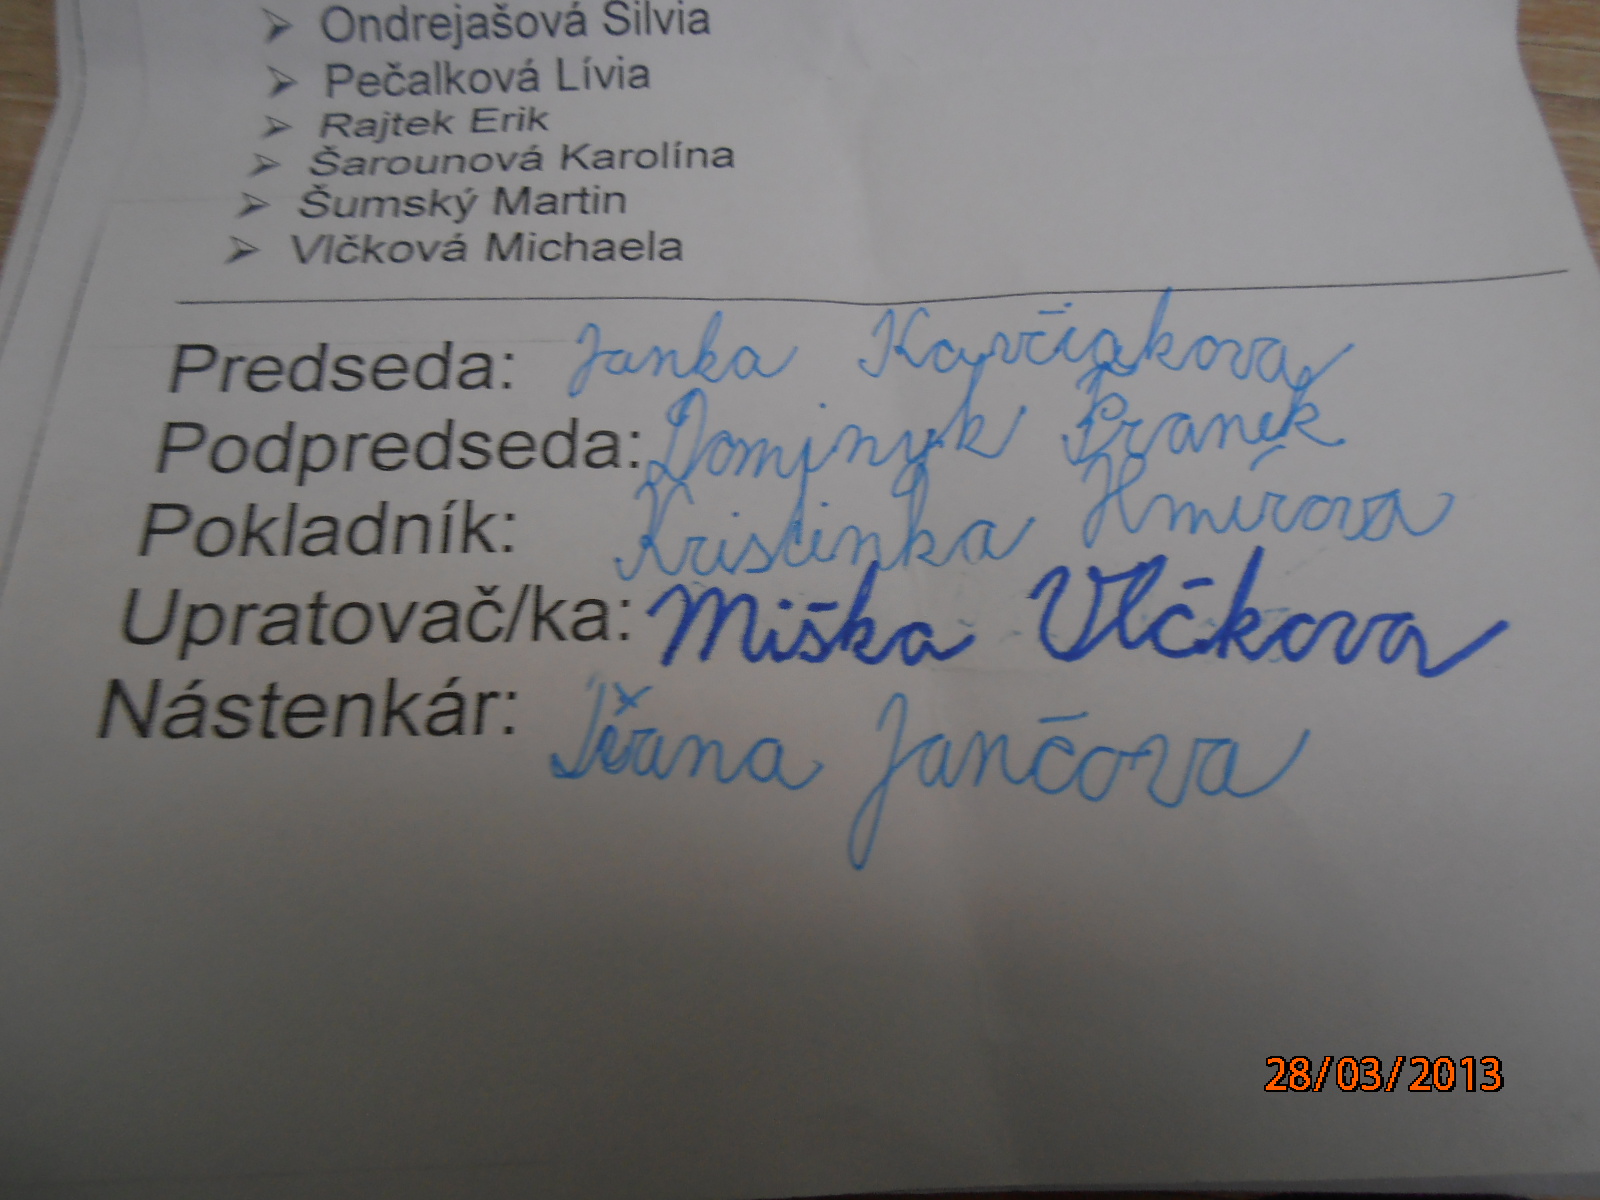 Ondrejašová Silvia
Pečalková Lívia
Rajtek Erik
Šarounová Karolína
Šumský Martin
Vlčková Michaela
Predseda: Janka Kavčiakova
Podpredseda: Dominyk
Pokladník: Kristinka Hmírova
Upratovač/ka: Miška Vlčkova
Nástenkár: Ivana Jančova
28/03/2013